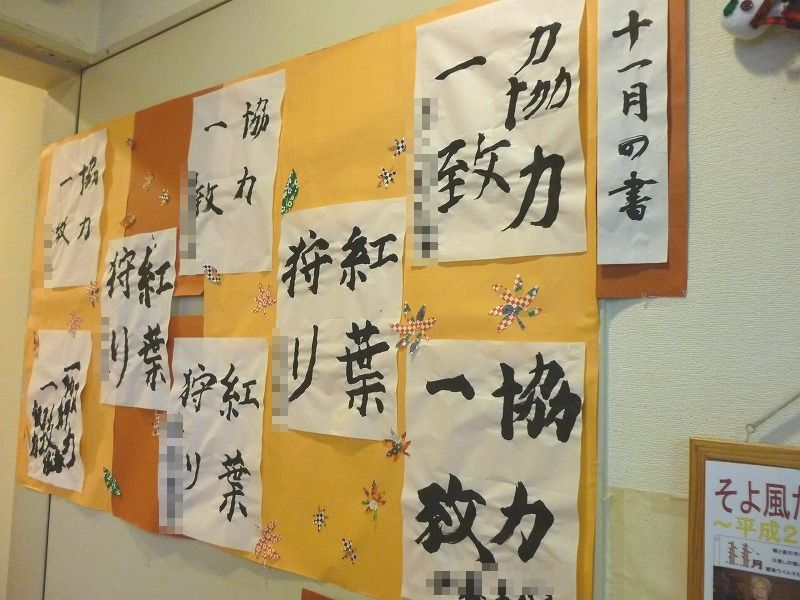 十一月の書
協力
一致
協力
一致
紅葉
狩り
協力
一致
紅葉
狩り
紅葉
狩り
協力
一致
そよ風
～平成2